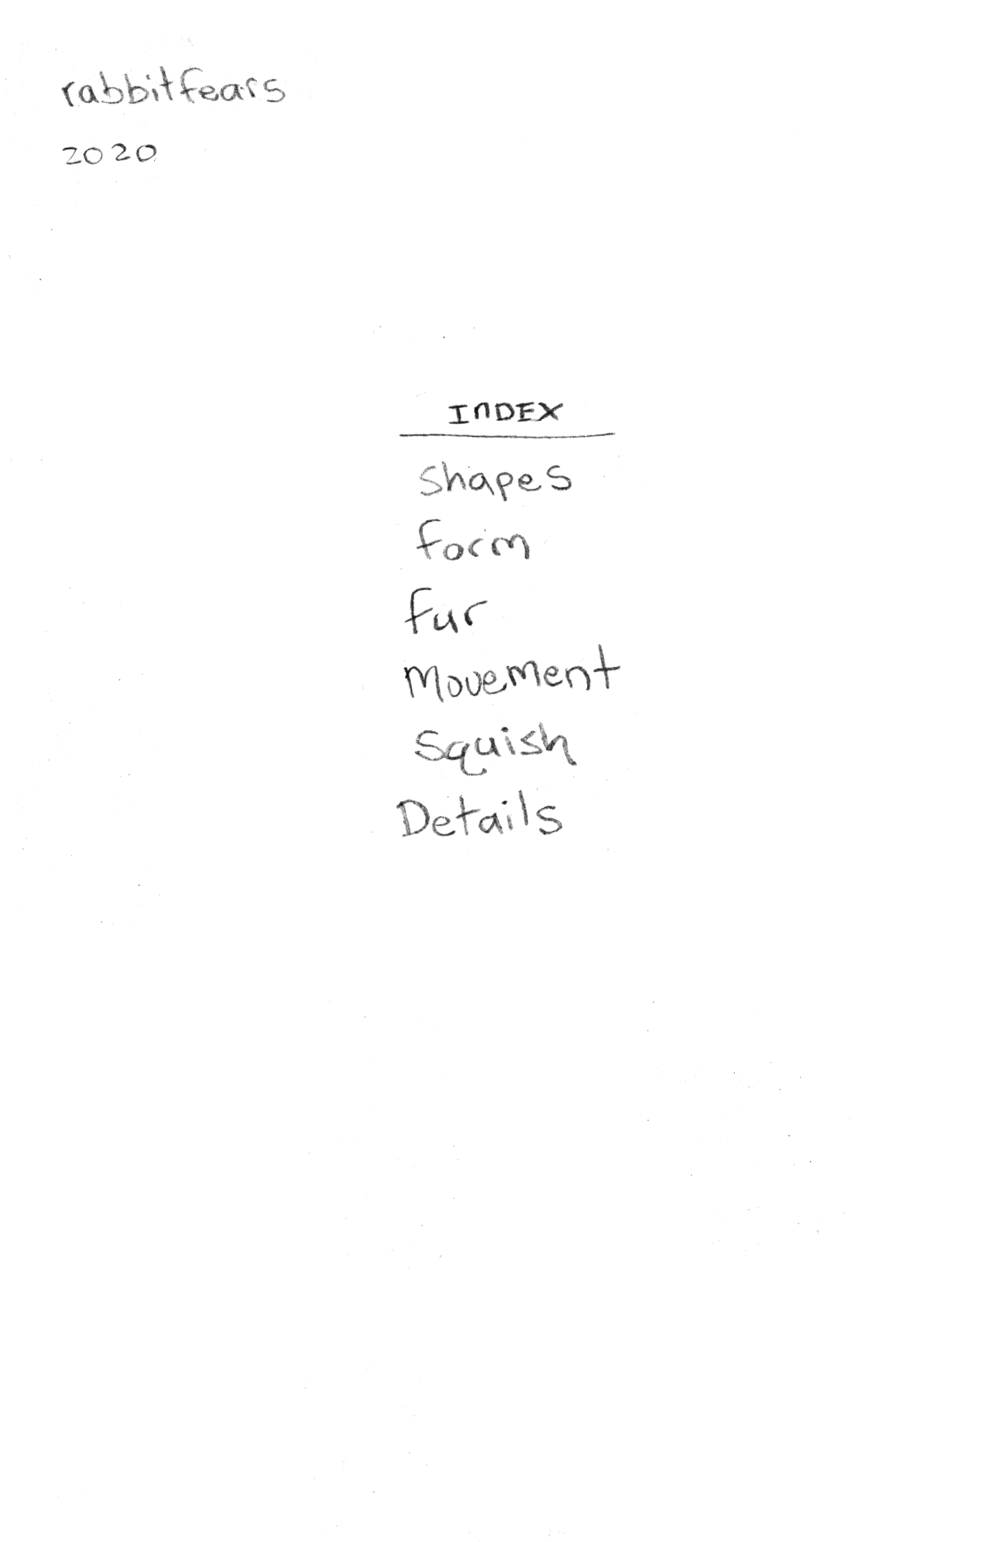 rabbitfears
2020
INDEX
Shapes
form
fur
Movement
Squish
Details